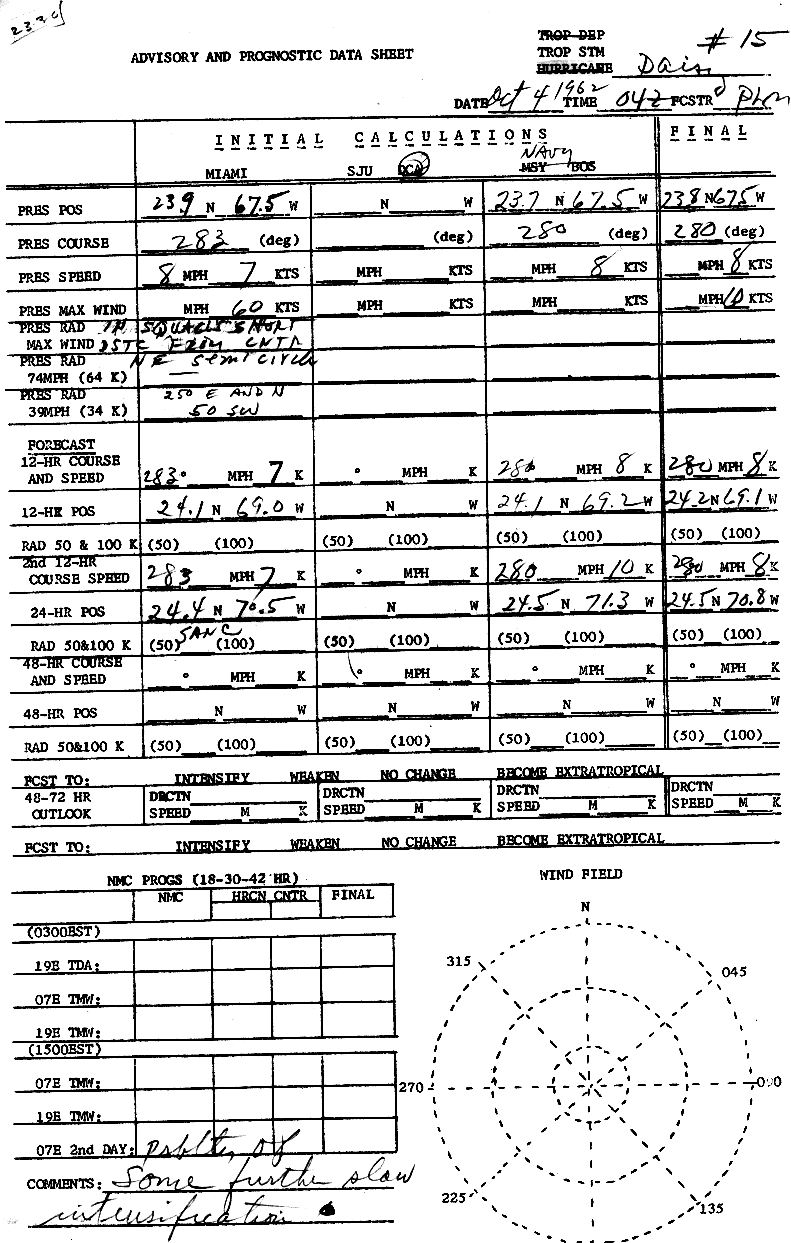 2330
# 15
ADVISORY AND PROGNOSTIC DATA SHEET
TROP DEP
TROP STM
HURRICANE Daisy
DATE Oct 4 1962 TIME 04Z FCSTR
INITIAL CALCULATIONS FINAL
NAVY
MIAMI SJU DCA MSY BOS
PRES POS 23.9 N 67.5 W N W 23.7 N 67.5 W 23.8 N 67.5 W
PRES COURSE 283 (deg) (deg) 280 (deg) 280 (deg)
PRES SPEED 8 MPH 7 KTS MPH KTS MPH 8 KTS MPH 8 KTS
PRES MAX WIND MPH 60 KTS MPH KTS MPH KTS MPH KTS
PRES RAD IN SQUALLS SHORT
MAX WIND DSTC FROM CNTR
PRES RAD NE semicircle
74MPH (64 K) —
PRES RAD 250 E AND N
39MPH (34 K) 50 SW
FORECAST
12-HR COURSE
AND SPEED 283° MPH 7 K ° MPH K 280 MPH 8 K 280 MPH 8 K
12-HR POS 24.1 N 69.0 W N W 24.1 N 69.2 W 24.2 N 69.1 W
RAD 50 & 100 K (50) (100) (50) (100) (50) (100) (50) (100)
2nd 12-HR
COURSE SPEED 283 MPH 7 K ° MPH K 280 MPH 10 K 280 MPH 8 K
24-HR POS 24.4 N 70.5 W N W 24.5 N 71.3 W 24.5 N 70.8 W
RAD 50&100 K (50) (100) (50) (100) (50) (100) (50) (100)
48-HR COURSE
AND SPEED ° MPH K ° MPH K ° MPH K ° MPH K
48-HR POS N W N W N W N W
RAD 50&100 K (50) (100) (50) (100) (50) (100) (50) (100)
FCST TO: INTENSIFY WEAKEN NO CHANGE BECOME EXTRATROPICAL
48-72 HR DRCTN DRCTN DRCTN DRCTN
OUTLOOK SPEED M K SPEED M K SPEED M K SPEED M K
FCST TO: INTENSIFY WEAKEN NO CHANGE BECOME EXTRATROPICAL
NMC PROGS (18-30-42 HR)
NMC HRCN CNTR FINAL
(0300EST)
19E TDA:
07E TMW:
19E TMW:
(1500EST)
07E TMW:
19E TMW:
07E 2nd DAY: psblty of
COMMENTS: Some further slow
intensification
WIND FIELD
N
315 045
270 090
225 135